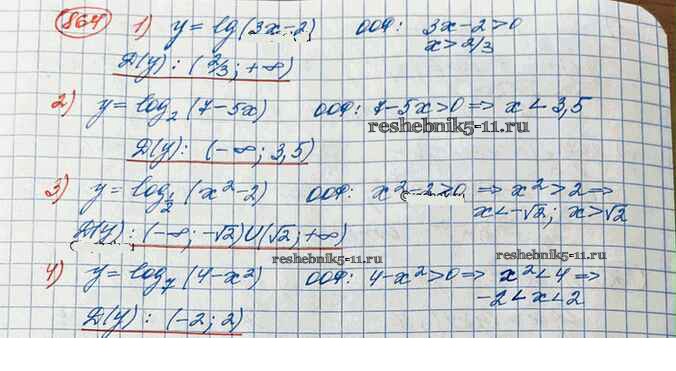 864 1) y = lg(3x-2) ООФ: 3x-2>0
x > 2/3
D(y): (2/3; +∞)
2) y = log₂(7-5x) ООФ: 7-5x>0 => x < 3,5
reshebnik5-11.ru
D(y): (-∞; 3,5)
3) y = log_{1/2}(x²-2) ООФ: x²-2>0 => x²>2 =>
x<-√2; x>√2
D(y): (-∞; -√2)U(√2; +∞)
reshebnik5-11.ru reshebnik5-11.ru
4) y = log₇(4-x²) ООФ: 4-x²>0 => x²<4 =>
-2<x<2
D(y): (-2; 2)